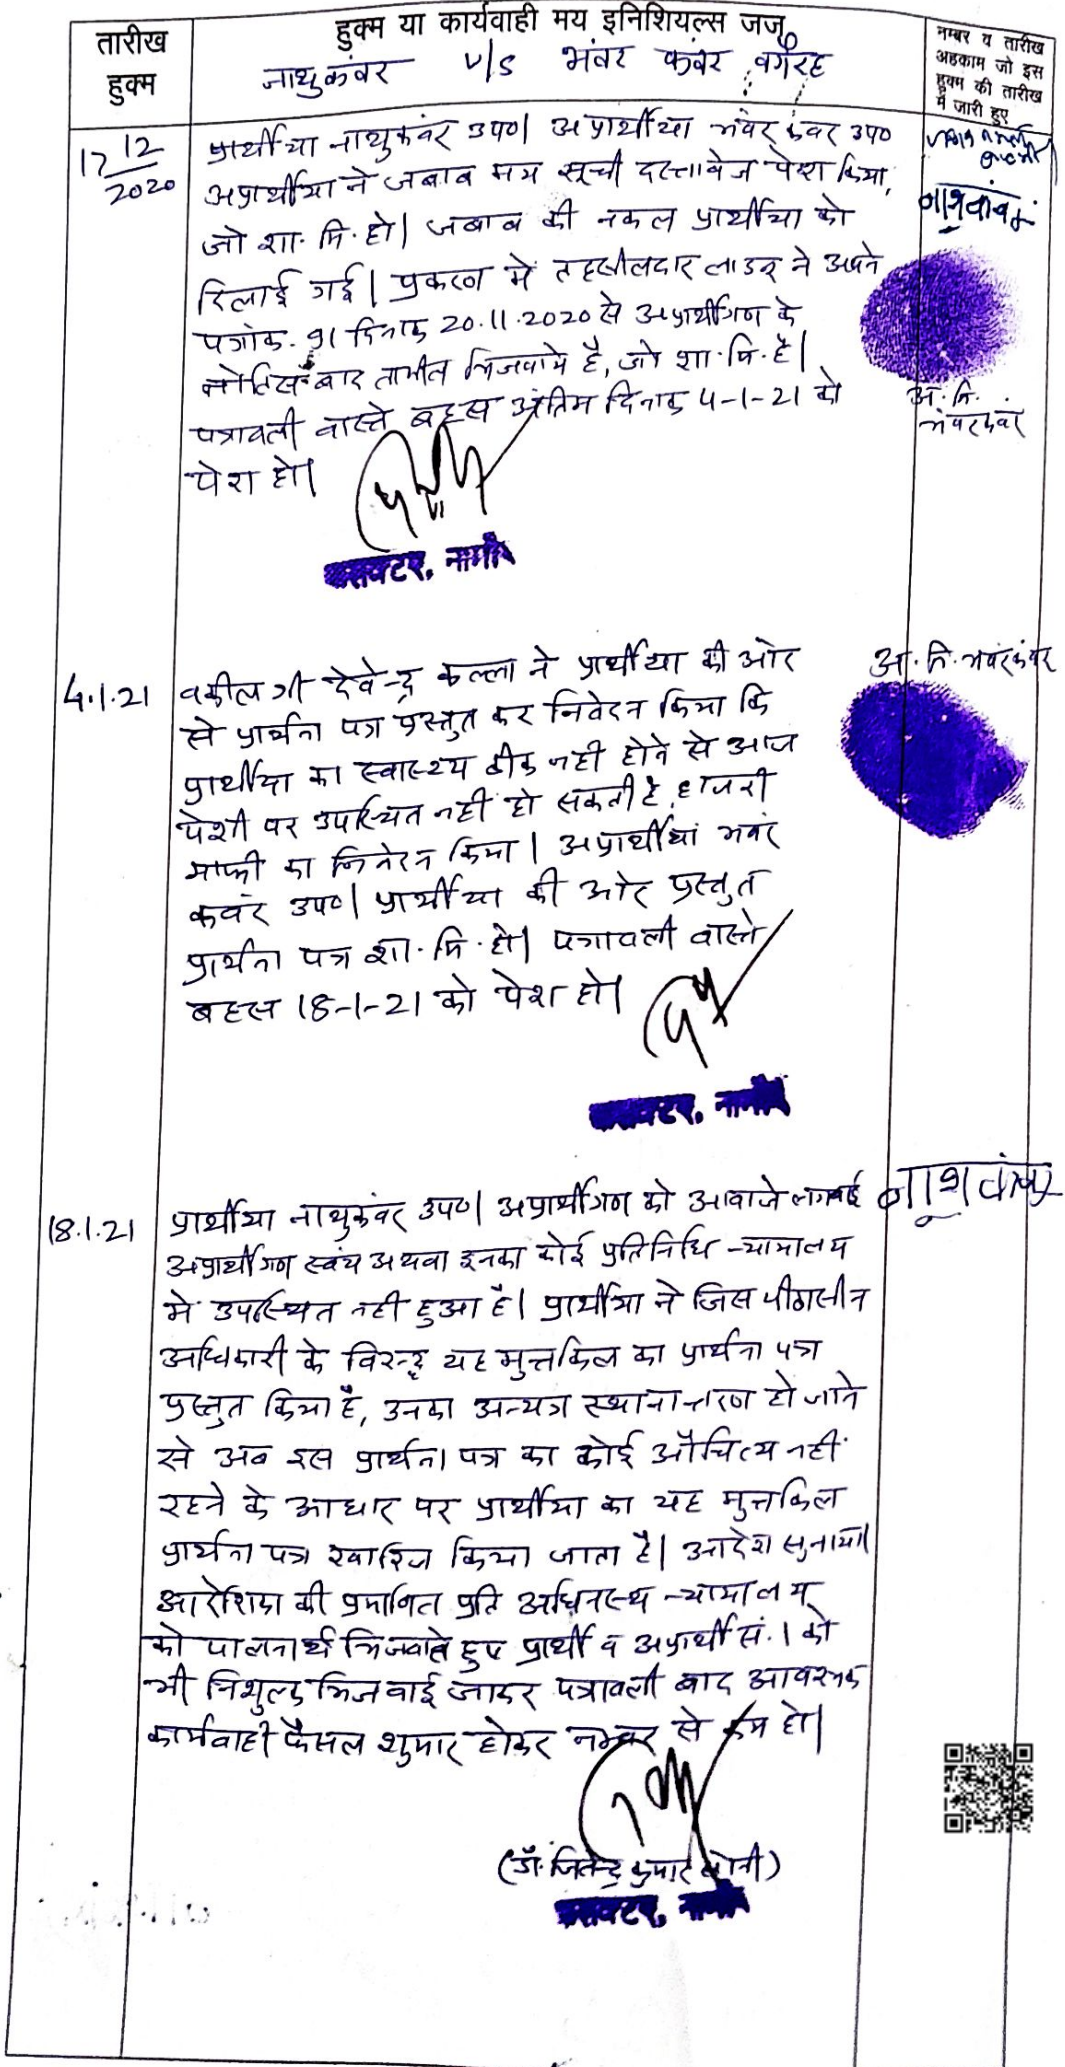 तारीख
हुक्म
हुक्म या कार्यवाही मय इनिशियल्स जज
नाथुकंवर v/s भंवर कंवर वगैरह
नम्बर व तारीख
अहकाम जो इस
हुक्म की तारीख
में जारी हुए
17 12/2020
प्रार्थीया नाथुकंवर उप०। अप्रार्थीया भंवर कंवर उप०
अप्रार्थीया ने जबाब मय सूची दस्तावेज पेश किया,
जो शा. मि. हो। जबाब की नकल प्रार्थीया को
दिलाई गई। प्रकरण में तहसीलदार लाडनू ने अपने
पत्रांक. 91 दिनांक 20.11.2020 से अप्रार्थीगण के
नोटिस बाद तामील भिजवाये है, जो शा.मि. है।
पत्रावली वास्ते बहस अंतिम दिनांक 4-1-21 को
पेश हो।
नाथुकंवर
अ. नि.
भंवरकंवर
कलक्टर, नागौर
4.1.21
वकील श्री देवेन्द्र कल्ला ने प्रार्थीया की ओर
से प्रार्थना पत्र प्रस्तुत कर निवेदन किया कि
प्रार्थीया का स्वास्थ्य ठीक नही होने से आज
पेशी पर उपस्थित नही हो सकती है, हाजरी
माफी का निवेदन किया। अप्रार्थीयां भवंर
कवंर उप०। प्रार्थीया की ओर प्रस्तुत
प्रार्थना पत्र शा. मि. हो। पत्रावली वास्ते
बहस 18-1-21 को पेश हो।
अ. नि. भवंरकंवर
कलक्टर, नागौर
18.1.21
प्रार्थीया नाथुकंवर उप०। अप्रार्थीगण को आवाजे लगवाई
अप्रार्थीगण स्वंय अथवा इनका कोई प्रतिनिधि न्यायालय
मे उपस्थित नही हुआ है। प्रार्थीया ने जिस पीठासीन
अधिकारी के विरूद्ध यह मुन्तकिल का प्रार्थना पत्र
प्रस्तुत किया है, उनका अन्यत्र स्थानान्तरण हो जाने
से अब इस प्रार्थना पत्र का कोई औचित्य नहीं
रहने के आधार पर प्रार्थीया का यह मुन्तकिल
प्रार्थना पत्र खारिज किया जाता है। आदेश सुनाया।
आदेशिका की प्रमाणित प्रति अधिनस्थ न्यायालय
को पालनार्थ भिजवाते हुए प्रार्थी व अप्रार्थी सं. 1 को
भी निशुल्क भिजवाई जाकर पत्रावली बाद आवश्यक
कार्यवाही फैसल शुमार होकर नम्बर से कम हो।
नाथुकंवर
(डॉ. जितेन्द्र कुमार सोनी)
कलक्टर, नागौर